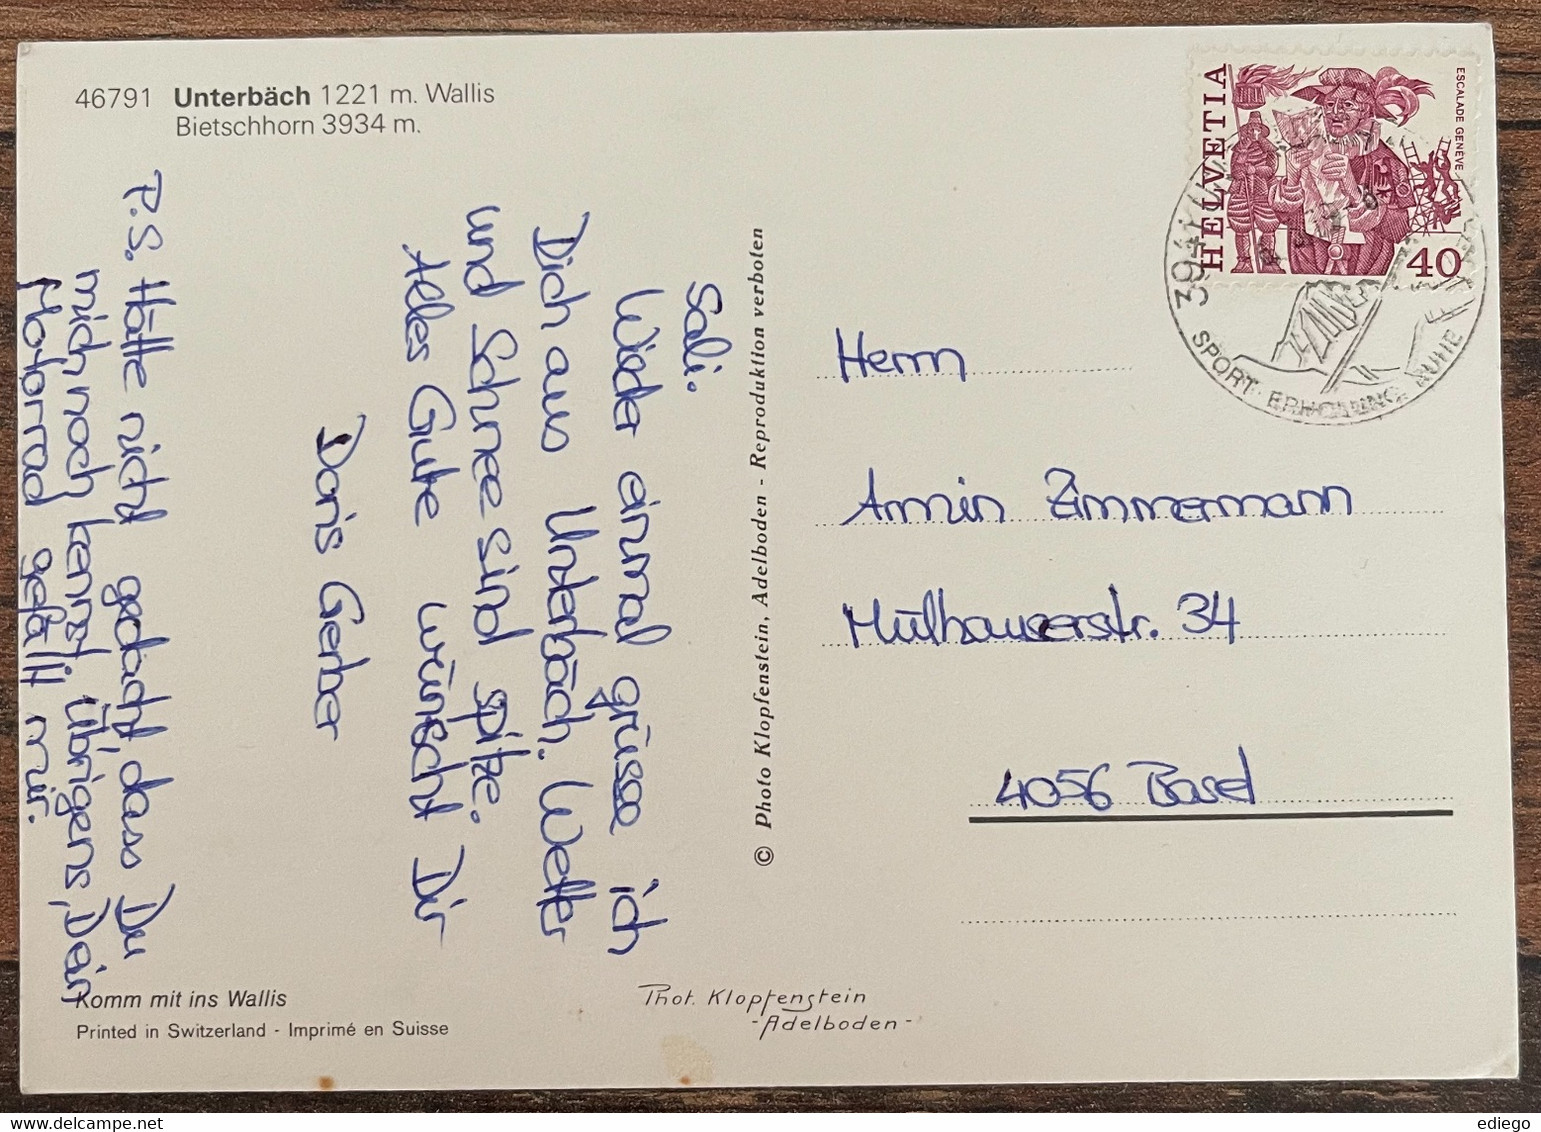 46791 Unterbäch 1221 m. Wallis
Bietschhorn 3934 m.
Sali.
Wieder einmal grüsse ich
Dich aus Unterbäch. Wetter
und Schnee sind spitze.
Alles Gute wünscht Dir
Doris Gerber
P.S. Hätte nicht gedacht dass Du
mich noch kennst, Übrigens, Dein
Motorrad gefällt mir.
Komm mit ins Wallis
Printed in Switzerland - Imprimé en Suisse
© Photo Klopfenstein, Adelboden - Reproduktion verboten
Phot. Klopfenstein
- Adelboden -
HELVETIA
ESCALADE GENÈVE
40
SPORT ERHOLUNG RUHE
Herrn
Armin Zimmermann
Mülhauserstr. 34
4056 Basel
ediego